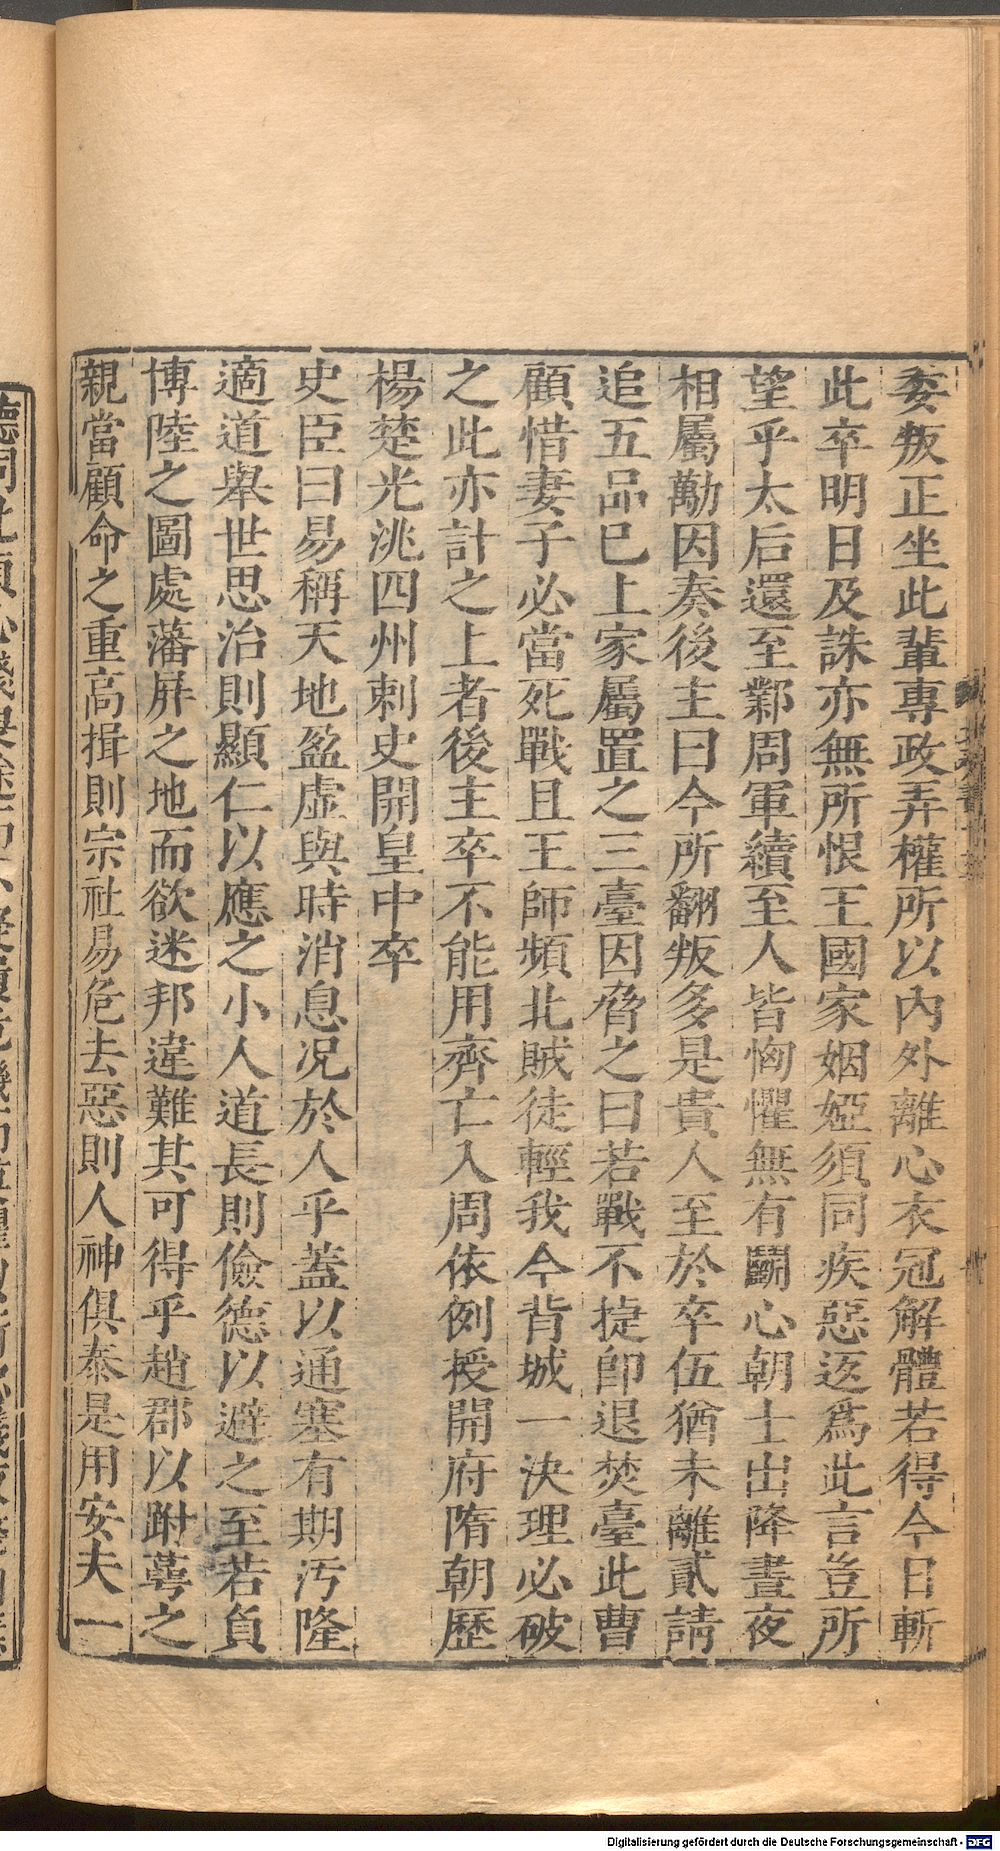 委叛正坐此輩專政弄權所以內外離心衣冠解體若得今日斬
此卒明日及誅亦無所恨王國家姻婭須同疾惡返爲此言豈所
望乎太后還至鄴周軍續至人皆恟懼無有鬭心朝士出降晝夜
相屬勱因奏後主曰今所翻叛多是貴人至於卒伍猶未離貳請
追五品已上家屬置之三臺因脅之曰若戰不捷卽退焚臺此曹
顧惜妻子必當死戰且王師頻北賊徒輕我今背城一決理必破
之此亦計之上者後主卒不能用齊亡入周依例授開府隋朝歷
楊楚光洮四州刺史開皇中卒
史臣曰易稱天地盈虛與時消息况於人乎蓋以通塞有期汚隆
適道舉世思治則顯仁以應之小人道長則儉德以避之至若負
博陸之圖處藩屏之地而欲迷邦違難其可得乎趙郡以跗萼之
親當顧命之重高揖則宗社易危去惡則人神俱泰是用安夫一
Digitalisierung gefördert durch die Deutsche Forschungsgemeinschaft - DFG